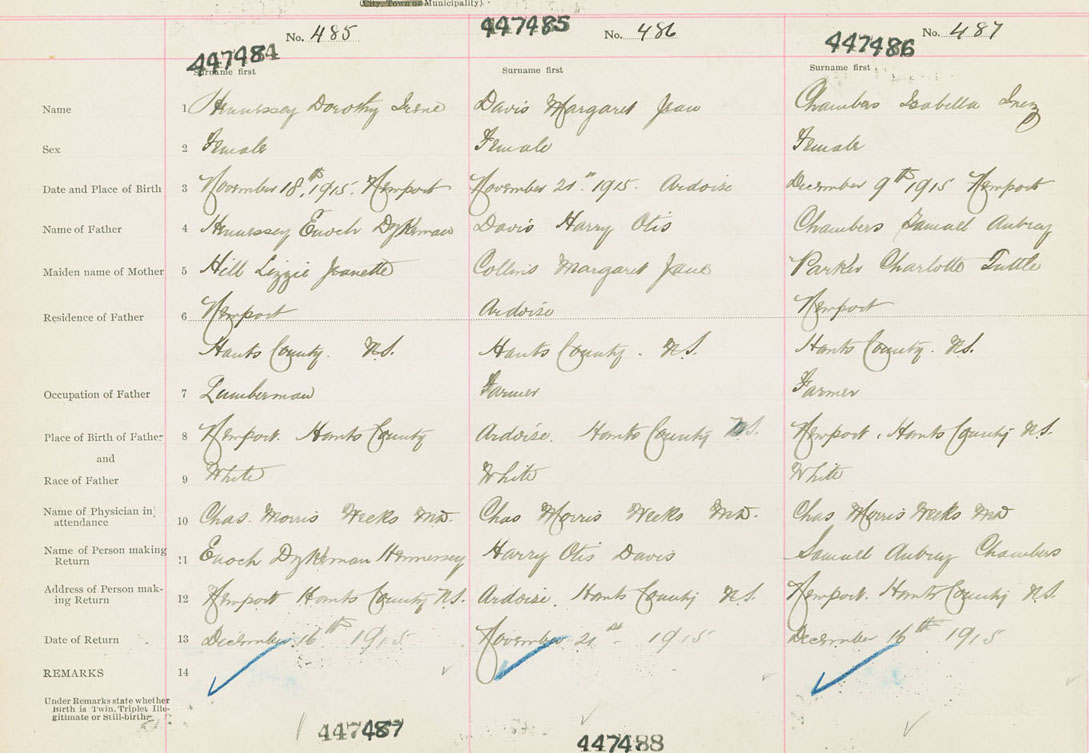 (City, Town or Municipality)
No. 485 No. 486 No. 487
447484 447485 447486
Surname first Surname first Surname first
Name 1 Hennessey Dorothy Irene Davis Margaret Jean Chambers Isabella Inez
Sex 2 Female Female Female
Date and Place of Birth 3 November 18th, 1915. Newport November 21st. 1915. Ardoise December 9th 1915 Newport
Name of Father 4 Hennessey Enoch Dykeman Davis Harry Otis Chambers Samuel Aubrey
Maiden name of Mother 5 Hill Lizzie Jeanette Collins Margaret Jane Parker Charlotte Tuttle
Residence of Father 6 Newport Ardoise Newport
Hants County. N.S. Hants County. N.S. Hants County. N.S.
Occupation of Father 7 Lumberman Farmer Farmer
Place of Birth of Father 8 Newport. Hants County Ardoise. Hants County N.S. Newport, Hants County N.S.
and
Race of Father 9 White White White
Name of Physician in
attendance 10 Chas. Morris Weeks M.D. Chas Morris Weeks M.D. Chas Morris Weeks M.D.
Name of Person making
Return 11 Enoch Dykeman Hennessey Harry Otis Davis Samuel Aubrey Chambers
Address of Person mak-
ing Return 12 Newport Hants County N.S. Ardoise, Hants County N.S. Newport. Hants County N.S.
Date of Return 13 December 16th 1915 November 21st 1915 December 16th 1915
REMARKS 14
Under Remarks state whether
Birth is Twin, Triplet, Ille-
gitimate or Still-birth.
447487 447488